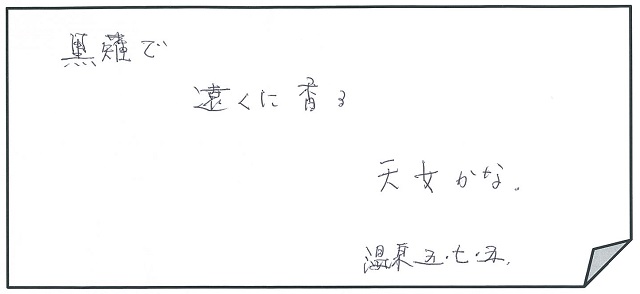 黒薙で
遠くに香る
天女かな。
温泉五・七・五。